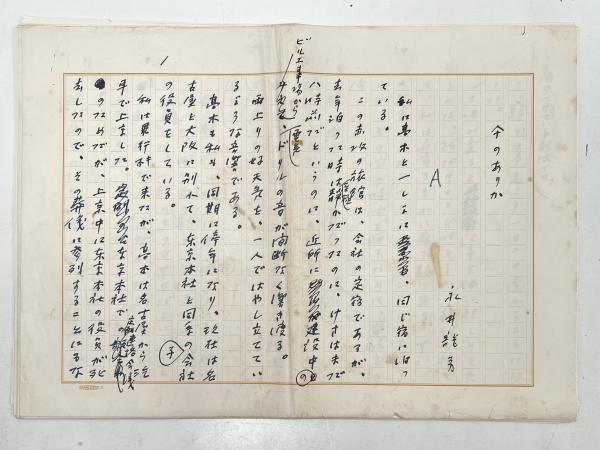 のありか
永井龍男
A
私は高木と一しょに、同じ宿に泊つ
ている。
この赤坂の旅館は、会社の定宿であるが、
去年泊つた時は静かだつたのに、けさはまだ
八時前だというのに、近所に建設中の
ビル工事場から電気
ドリルの音が間断なく響き渡る。
雨上りの好天気を、一人ではやし立ててい
るような音響である。
高木も私も、同期に停年になり、現在は名
古屋と大阪に別れて、東京本社と同系の子会社
の役員をしている。
私は飛行機で来たが、高木は名古屋から汽
車で上京した。東京本社での連絡会議
のためだが、上京中に東京本社の役員が死
去したので、その葬儀に参列することにな